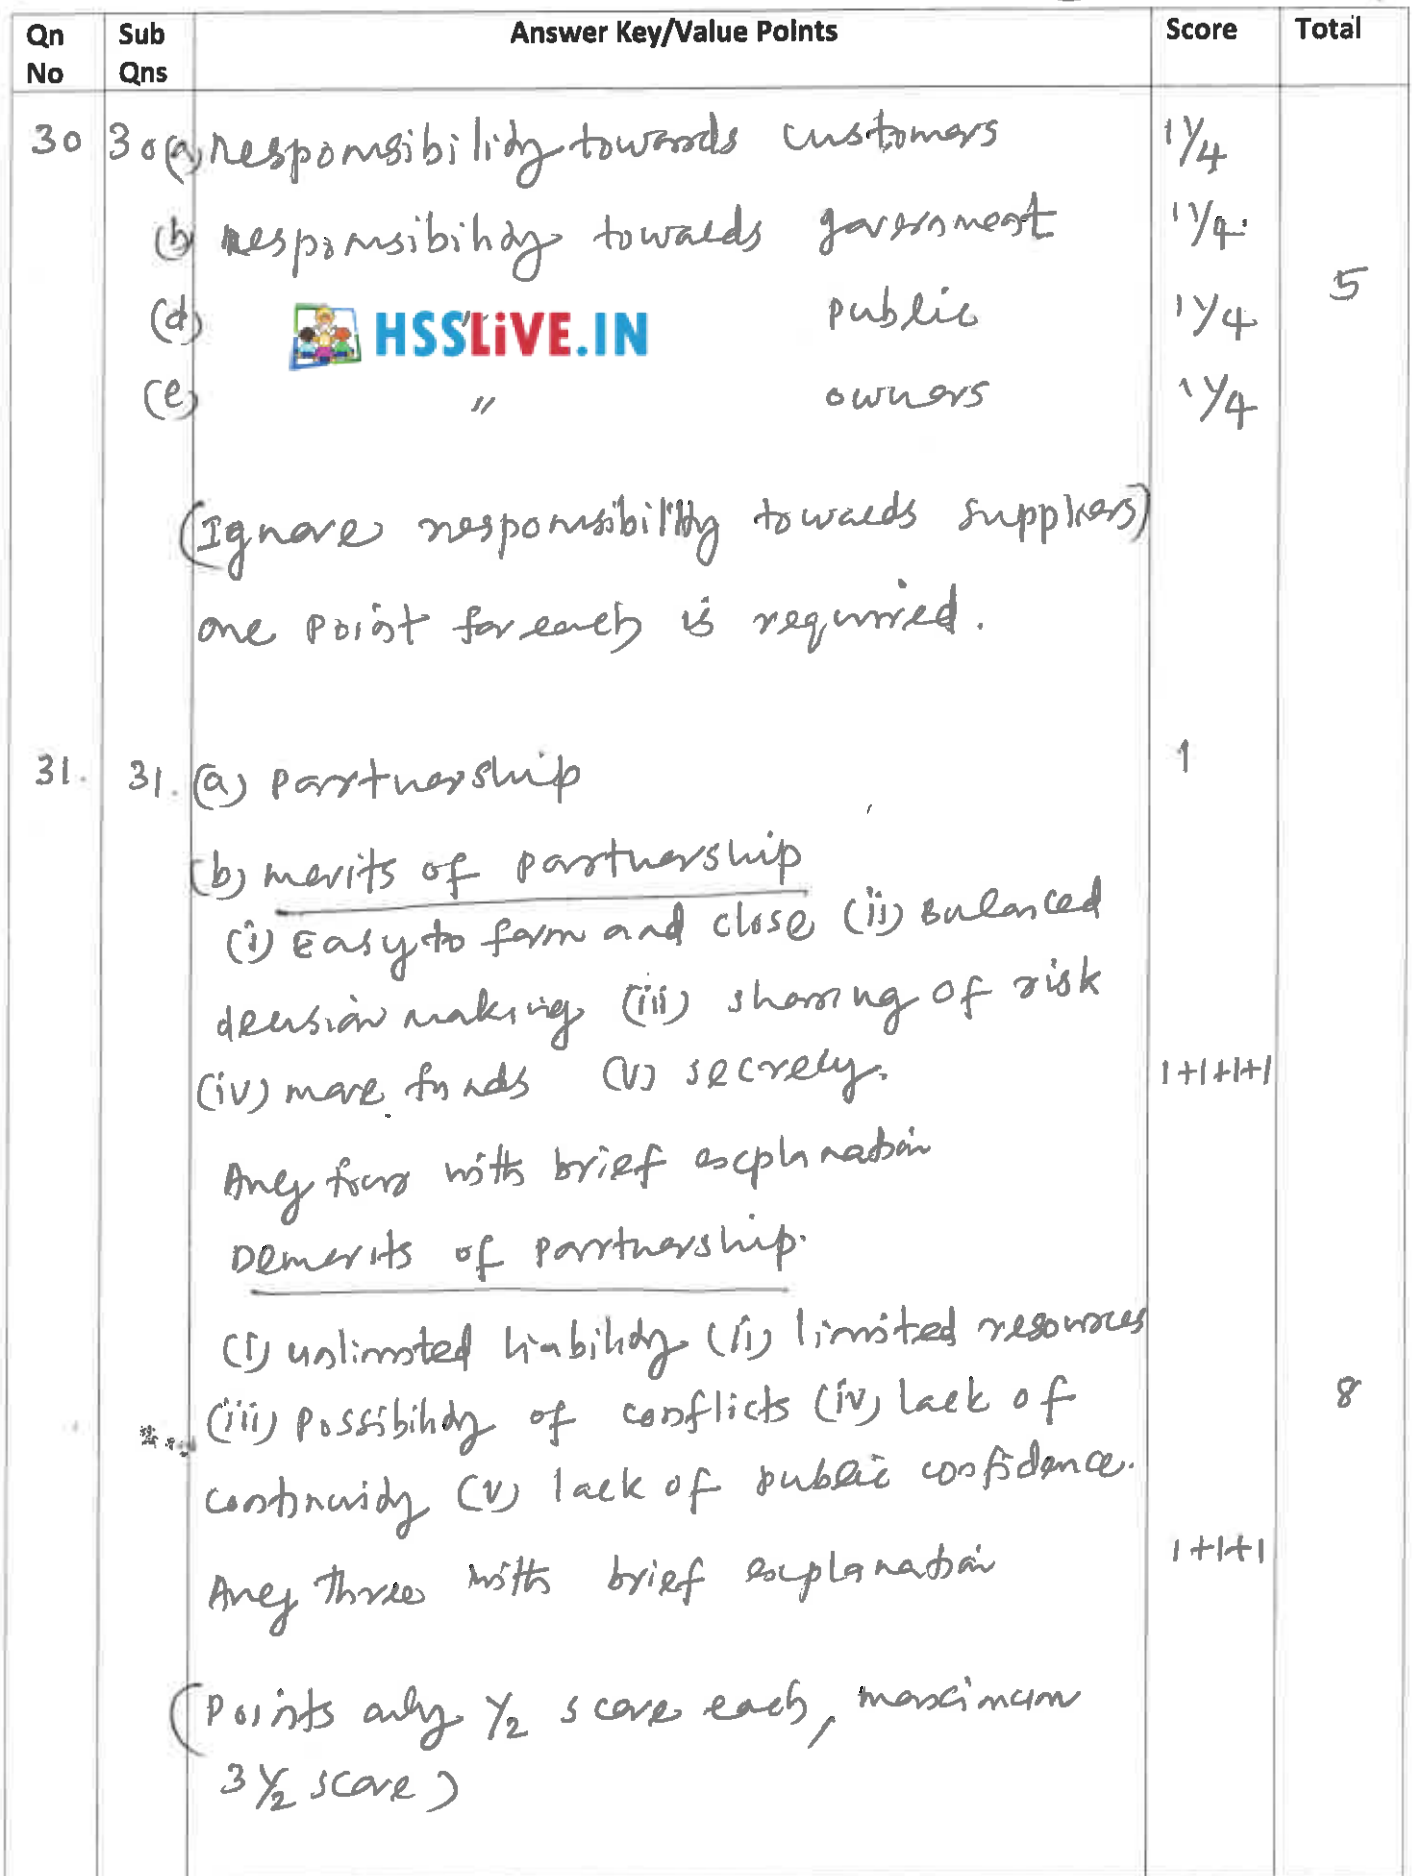 Qn No Sub Qns Answer Key/Value Points Score Total
30 30(a) responsibility towards customers 1 1/4
(b) responsibility towards government 1 1/4.
5
(d) " public 1 1/4
HSSLiVE.IN
(e) " owners 1 1/4
(Ignore responsibility towards suppliers)
one point for each is required.
31. 31. (a) partnership 1
(b) merits of partnership
(i) Easy to form and close (ii) Balanced
decision making (iii) sharing of risk
(iv) more funds (v) secrecy. 1+1+1+1
Any four with brief explanation
Demerits of partnership.
(i) unlimited liability (ii) limited resources
(iii) possibility of conflicts (iv) lack of 8
continuity (v) lack of public confidence.
Any three with brief explanation 1+1+1
(points only 1/2 score each, maximum
3 1/2 score)